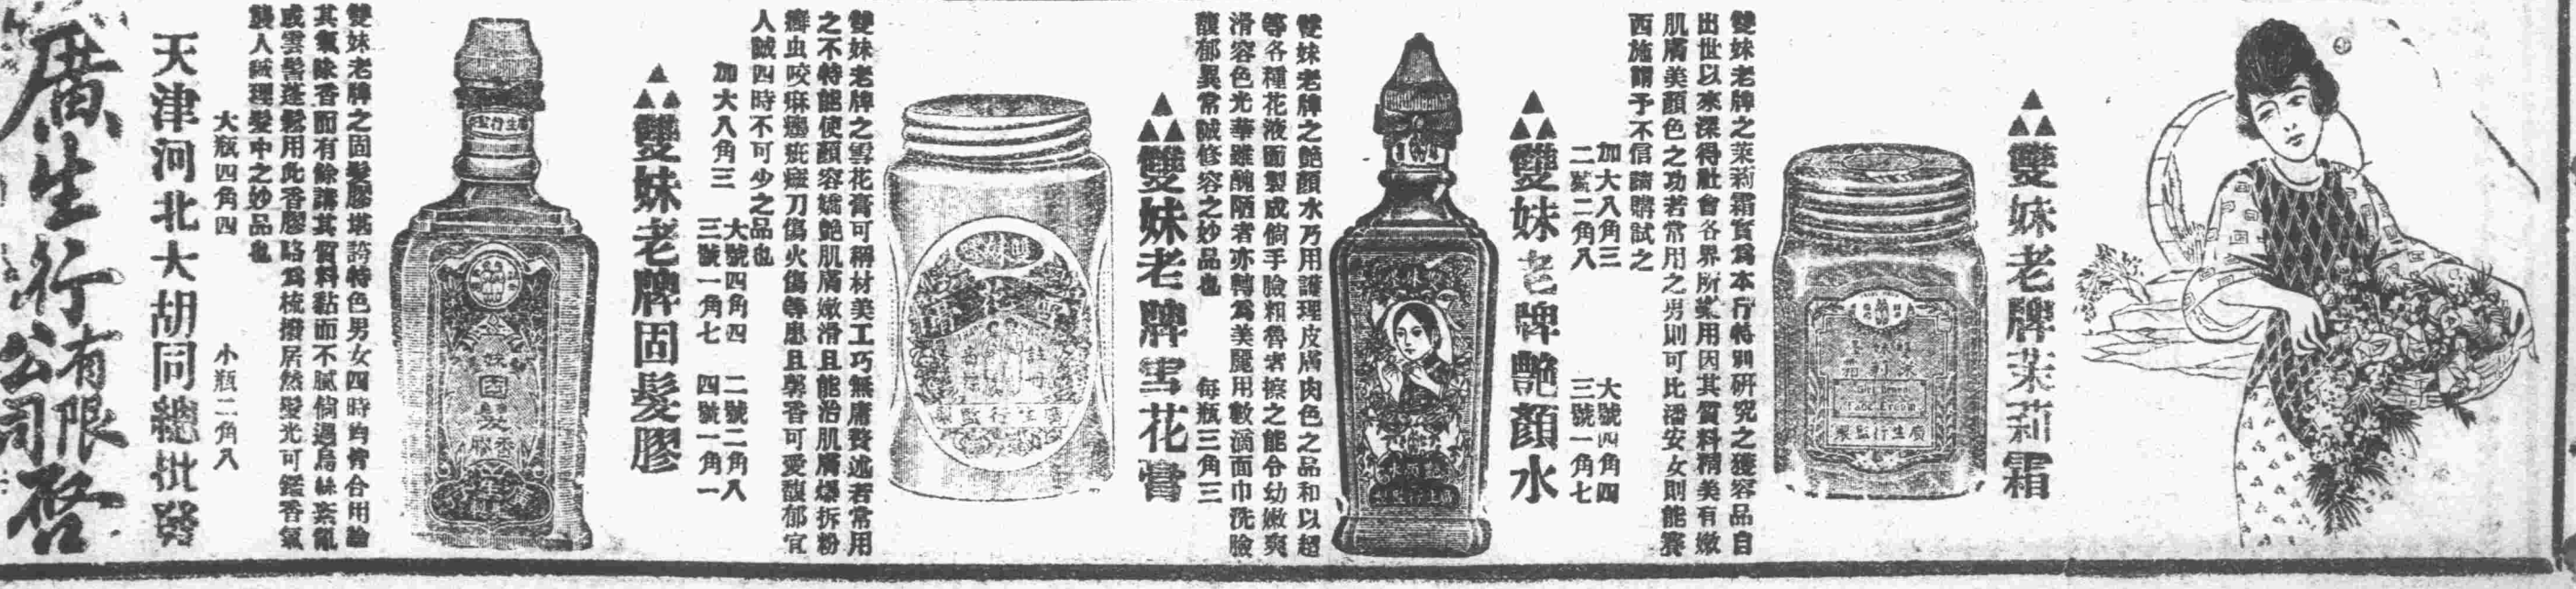 雙妹老牌茉莉霜
雙妹老牌之茉莉霜實爲本行特別研究之獲容品自
出世以來深得社會各界所樂用因其質料精美有嫩
肌膚美顏色之功若常用之男則可比潘安女則能賽
西施謂予不信請購試之
加大八角三 大號四角四
二號二角八 三號一角七
雙妹老牌艷顏水
雙妹老牌之艷顏水乃用護理皮膚肉色之品和以超
等各種花液而製成倘手臉粗魯者擦之能令幼嫩爽
滑容色光華雖醜陋者亦轉爲美麗用數滴面巾洗臉
馥郁異常誠修容之妙品也 每瓶三角三
雙妹老牌雪花膏
雙妹老牌之雪花膏可稱材美工巧無庸贅述若常用
之不特能使顏容嬌艷肌膚嫩滑且能治肌膚爆拆粉
癬虫咬痲瘋疵痣刀傷火傷等患且馨香可愛馥郁宜
人誠四時不可少之品也
加大八角三 大號四角四 二號二角八
三號一角七 四號一角一
雙妹老牌固髮膠
雙妹老牌之固髮膠堪誇特色男女四時均皆合用論
其氣味香而有餘講其質料黏而不膩倘遇烏絲紊亂
或雲鬢蓬鬆用此香膠略爲梳撥居然髮光可鑑香氣
襲人誠理髮中之妙品也
大瓶四角四 小瓶二角八
天津河北大胡同總批發
廣生行有限公司啓
廣生行監製